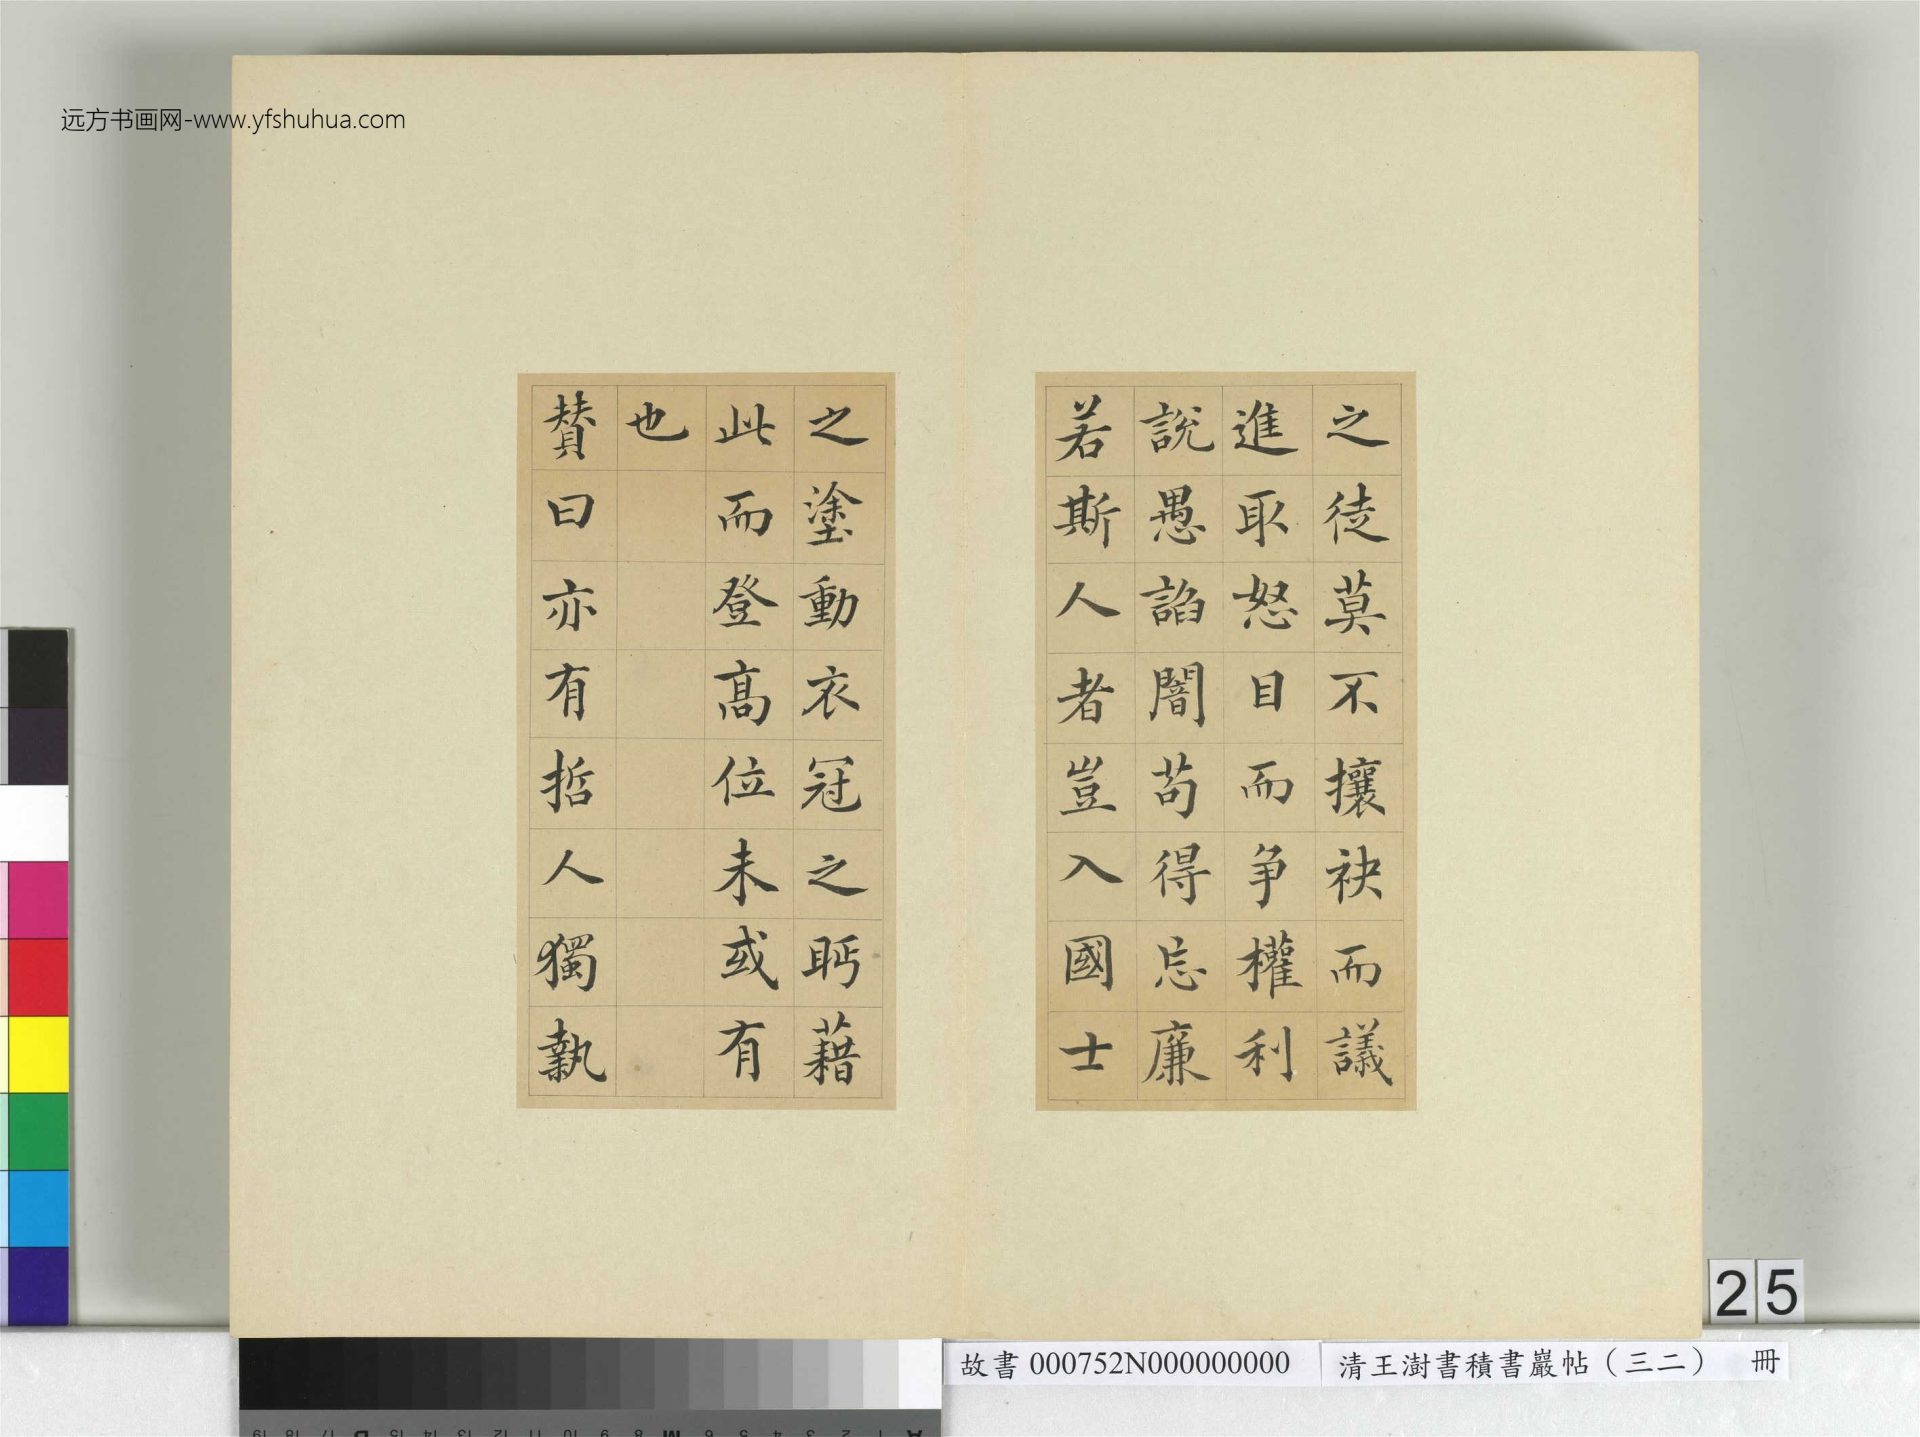 远方书画网-www.yfshuhua.com
之徒莫不攘袂而議
進取怒目而争權利
說愚諂闇苟得忘廉
若斯人者豈入國士
之塗動衣冠之眄藉
此而登高位未或有
也
賛曰亦有哲人獨執
25
故書000752N000000000
清王澍書積書巖帖（三二） 冊